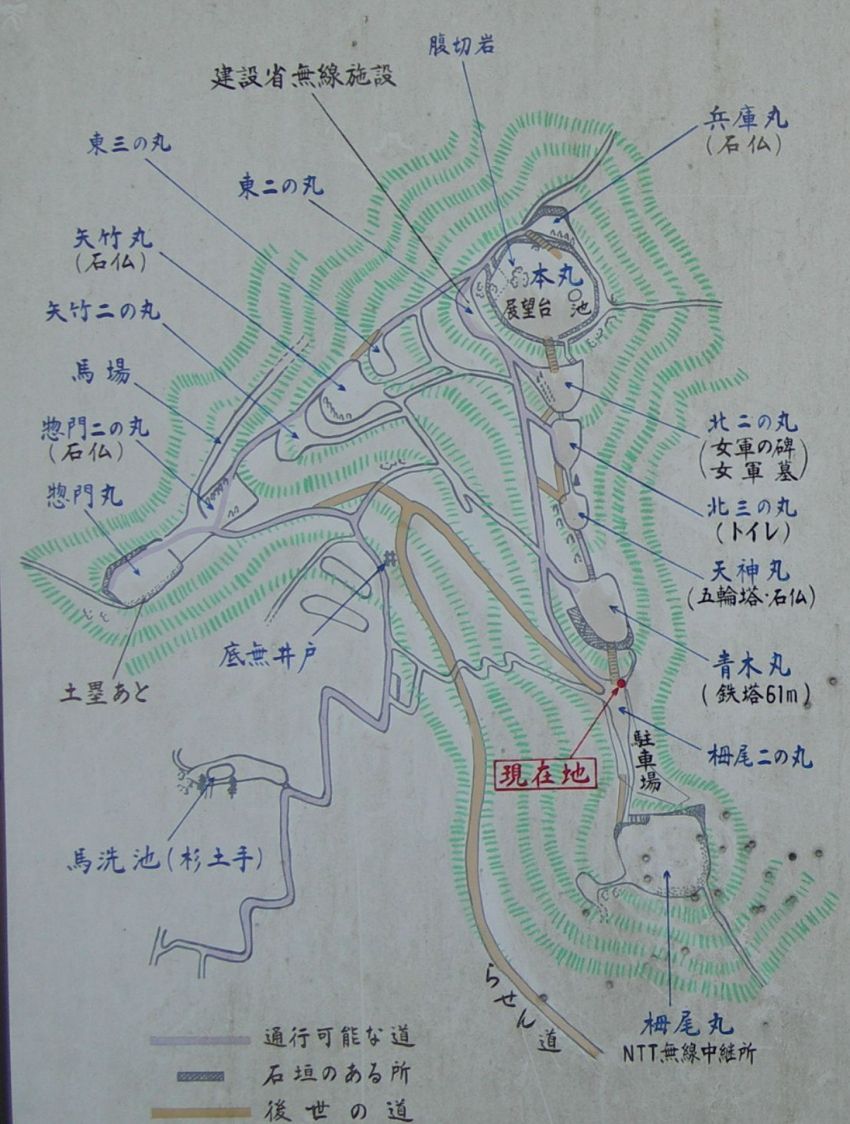 腹切岩
建設省無線施設
兵庫丸
(石仏)
東三の丸
東二の丸
矢竹丸
(石仏)
本丸
展望台 池
矢竹二の丸
馬場
惣門二の丸
(石仏)
北二の丸
(女軍の碑
女軍墓)
惣門丸
北三の丸
(トイレ)
天神丸
(五輪塔・石仏)
底無井戸
青木丸
(鉄塔61m)
土塁あと
現在地
駐車場
栂尾二の丸
馬洗池(杉土手)
らせん道
栂尾丸
NTT無線中継所
通行可能な道
石垣のある所
後世の道